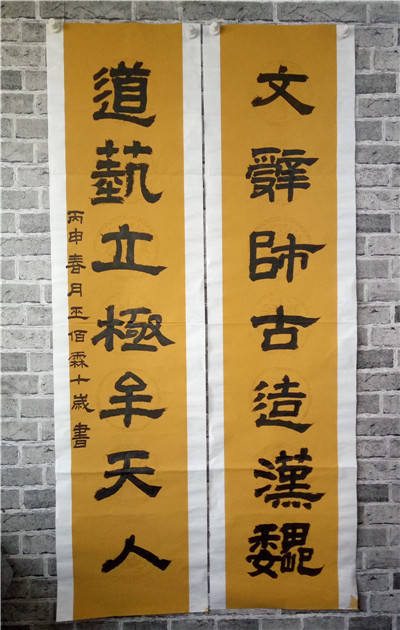 文辭師古造漢魏
道藝立極牟天人
丙申春月王佰霖十歲書